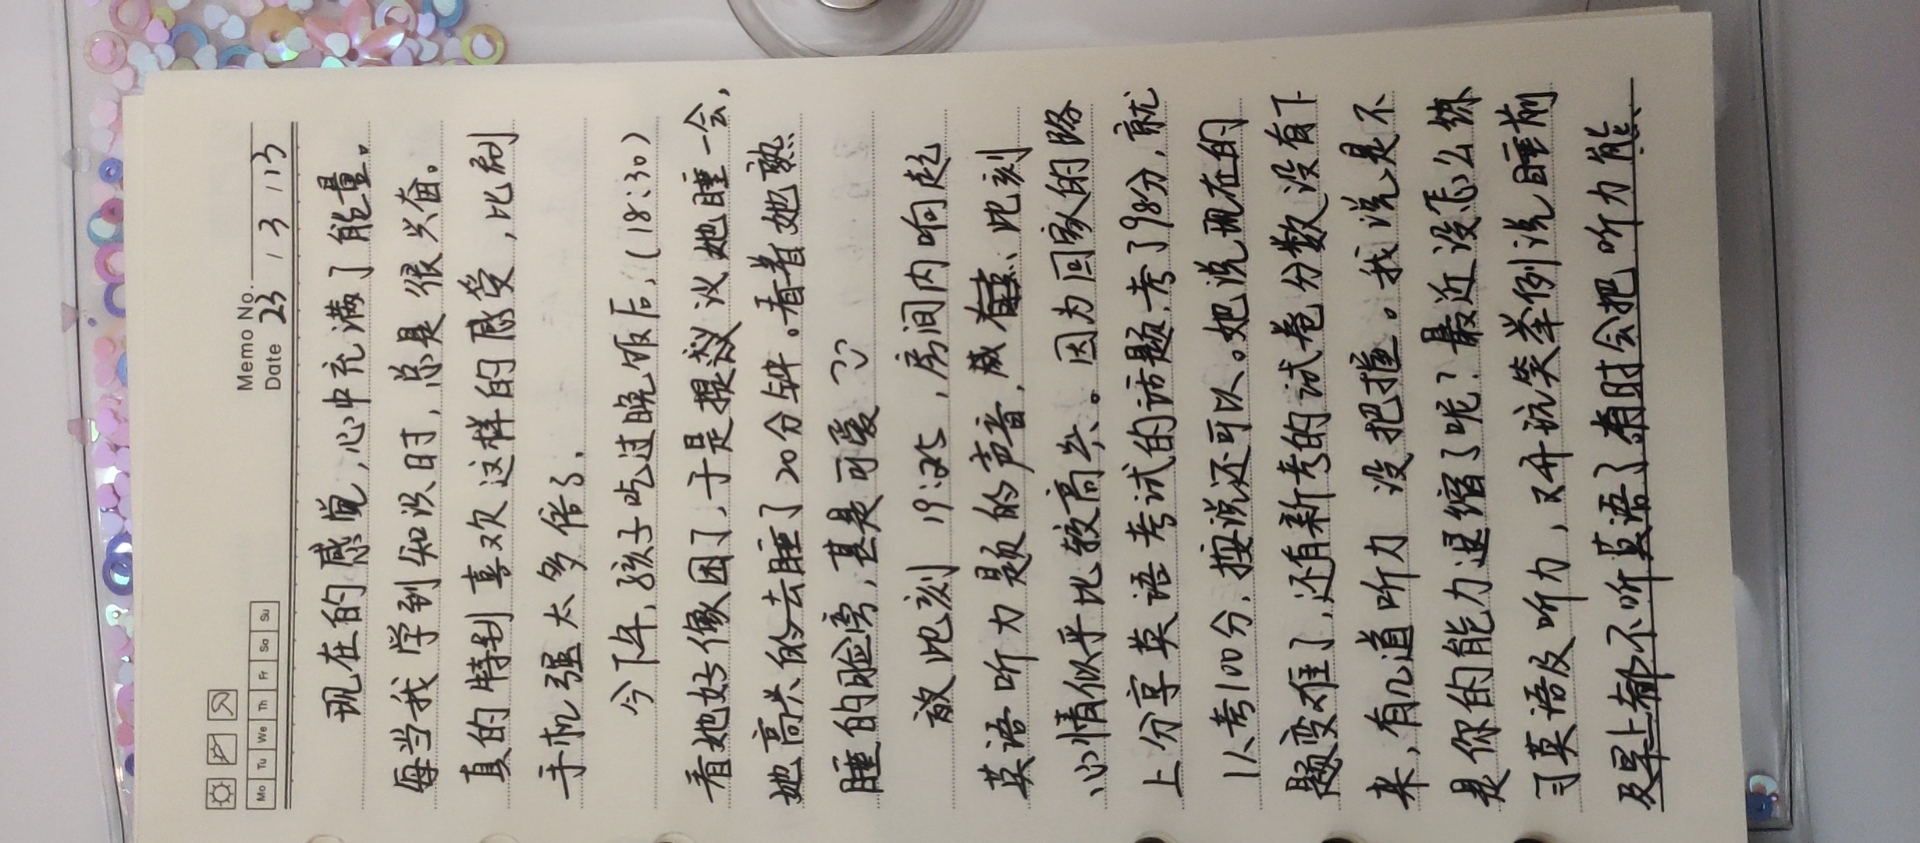 Memo No.
Date 23 / 3 / 13
Mo Tu We Th Fr Sa Su
现在的感觉,心中充满了能量。
每当我学到知识时,总是很兴奋。
真的特别喜欢这样的感受,比刷
手机强太多倍了.
今下午,孩子吃过晚饭后,(18:30)
看她好像困了,于是提议她睡一会,
她高兴的去睡了20分钟。看着她熟
睡的脸旁,甚是可爱
此刻19:25,房间内响起
英语听力题的声音,此刻
心情似乎比较高兴。因为回家的路
上分享英语考试的话题,考了98分,就
以考100分,按说还可以。她说现在的
题变难了,还有新考的试卷分数没有下
来,有几道听力 没把握。我说是不
是你的能力退缩了呢?最近没怎么练
习英语及听力,又开玩笑举例说睡前
及早上都不听英语了有时会把听力能